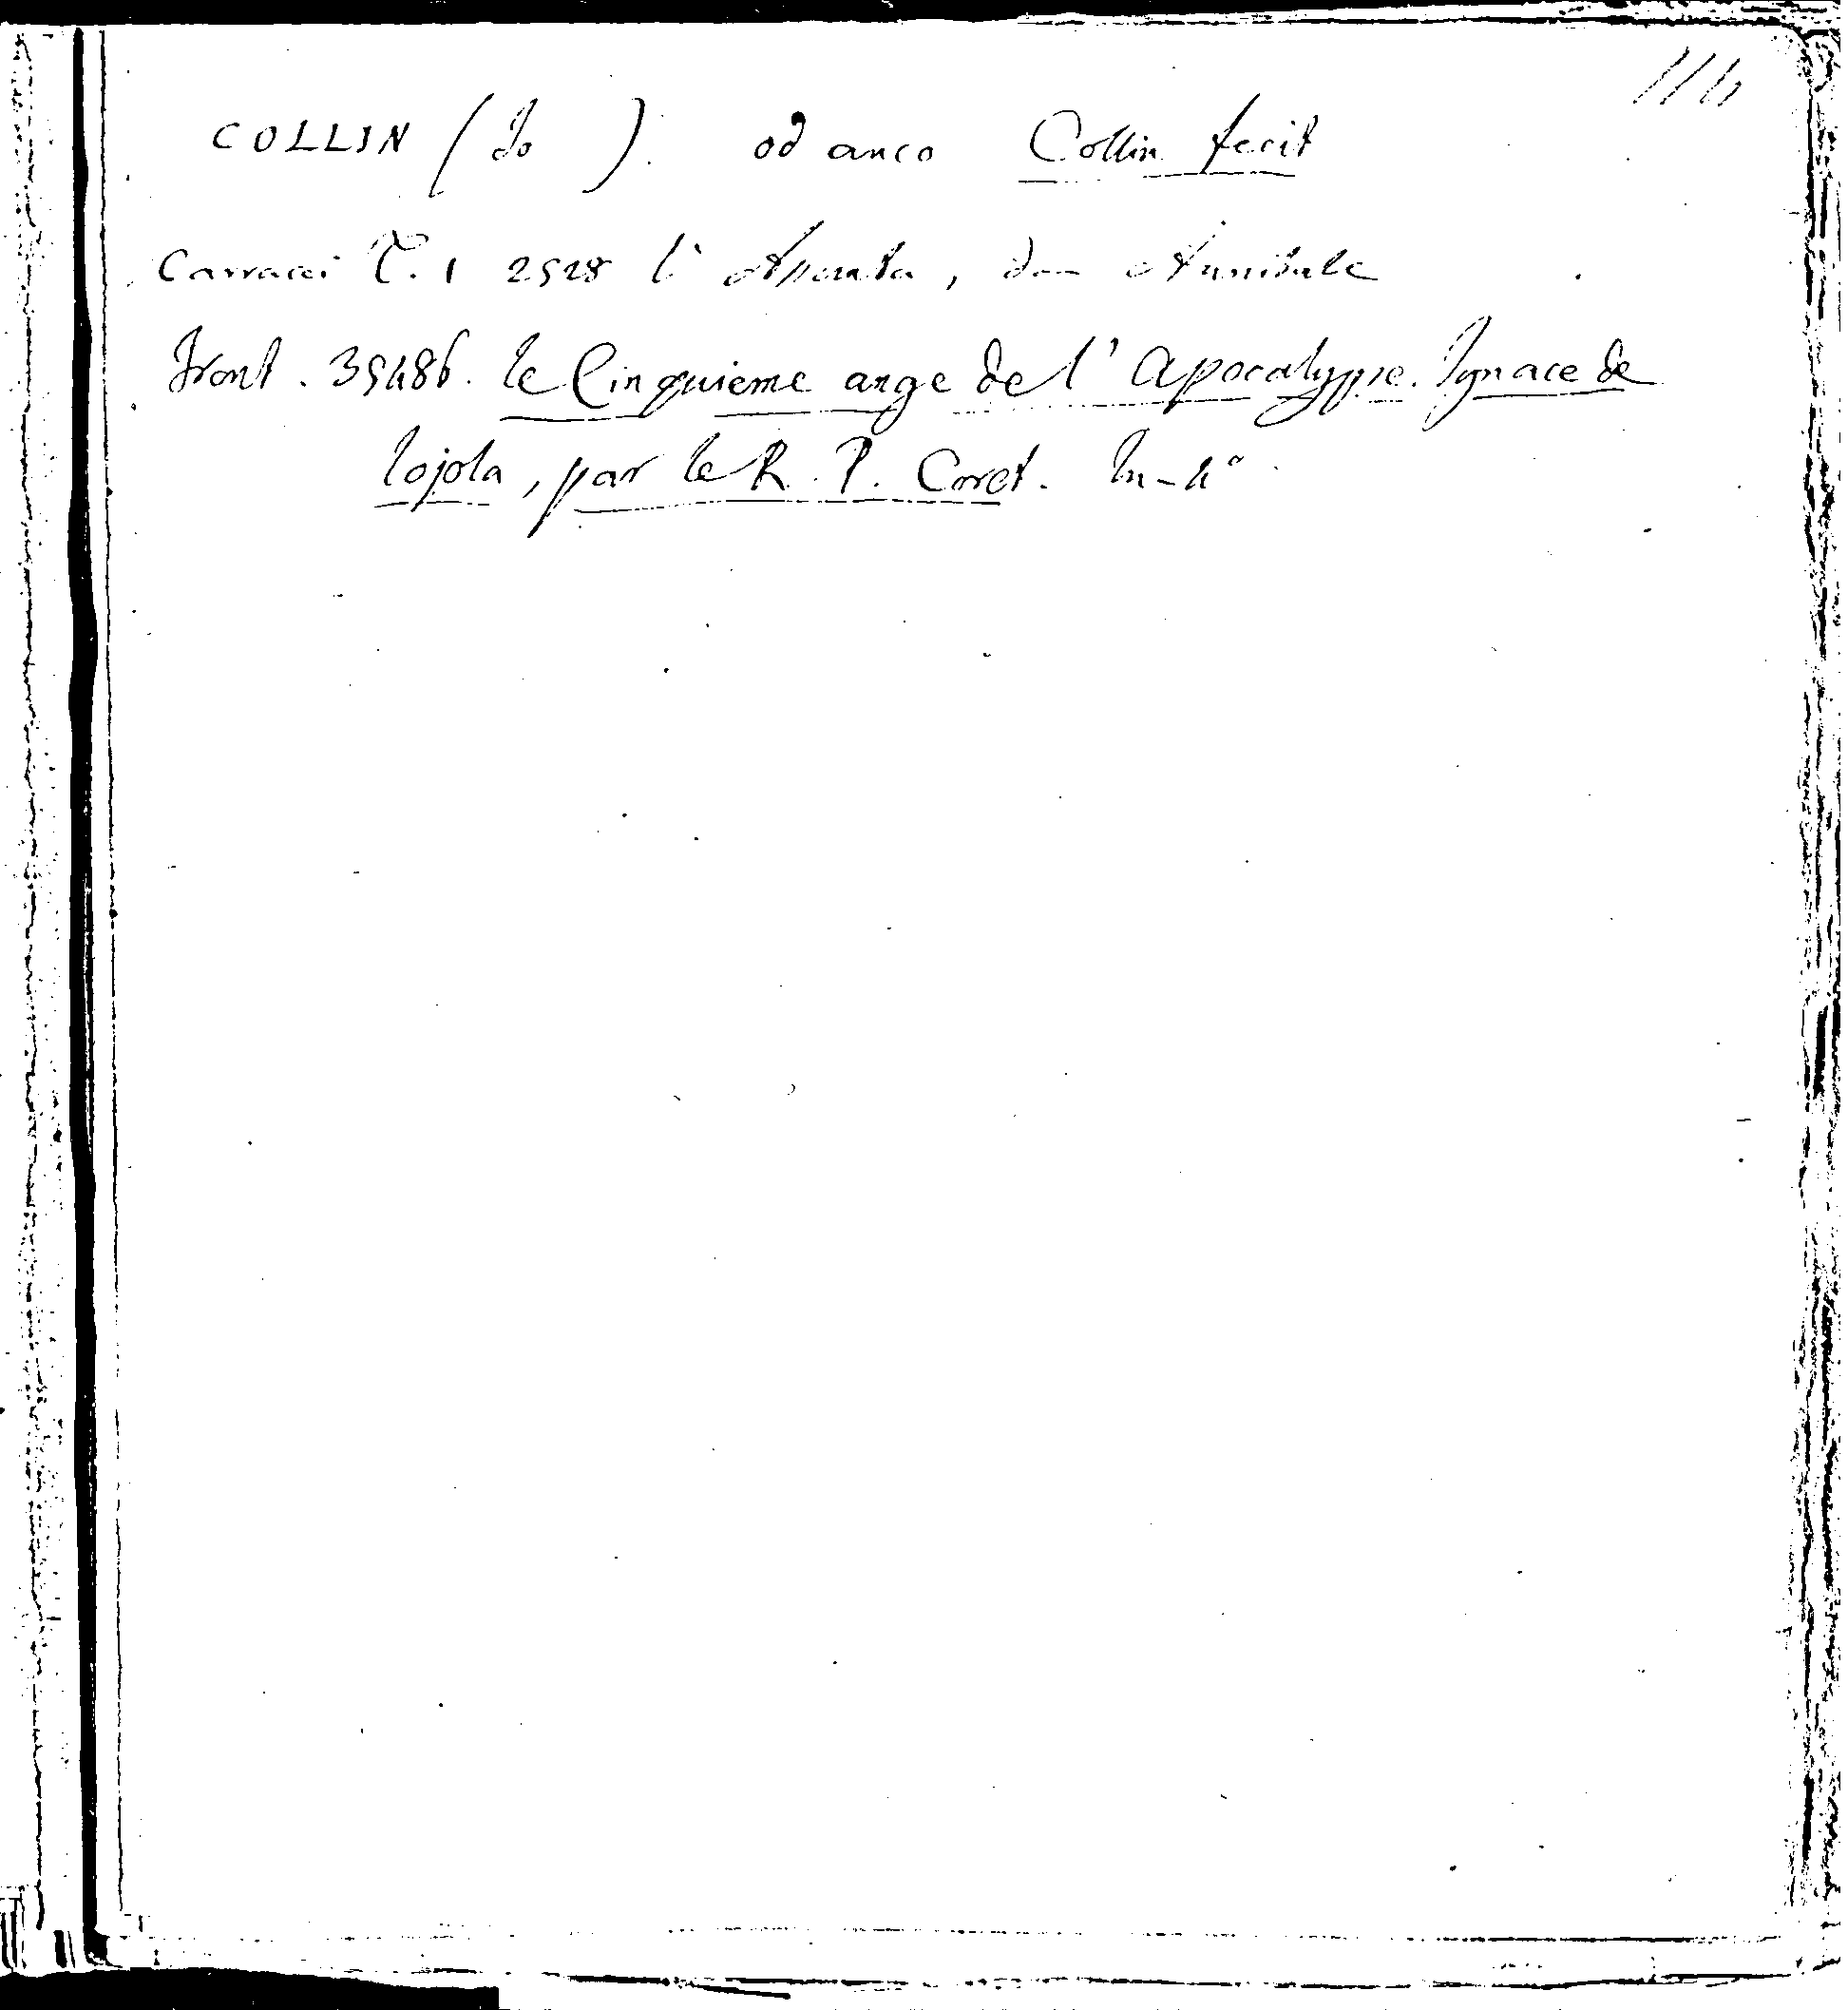 114
COLLIN (Jo ). od anco Collin fecit
Carracci T. 1 2528 l'Assunta, da Annibale
Front. 35486. le Cinquieme ange de l'Apocalypse. Ignace de
lojola, par le R. P. Coret. In-4°